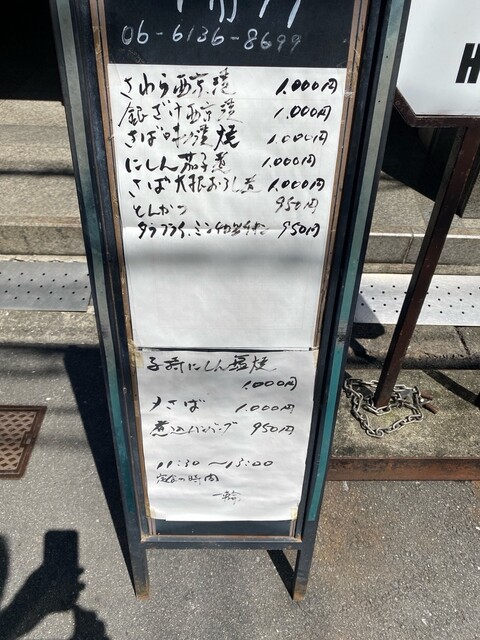 06-6136-8699
さわら西京焼 1,000円
銀ざけ西京焼 1,000円
さば味噌煮 1,000円
にしん茄子煮 1,000円
さば大根おろし煮 1,000円
とんかつ 950円
タラフライ、ミンチカツ 950円
子持にしん塩焼
1,000円
〆さば 1,000円
煮込ハンバーグ 950円
11:30 〜13:00
定食の時間
一輪
H